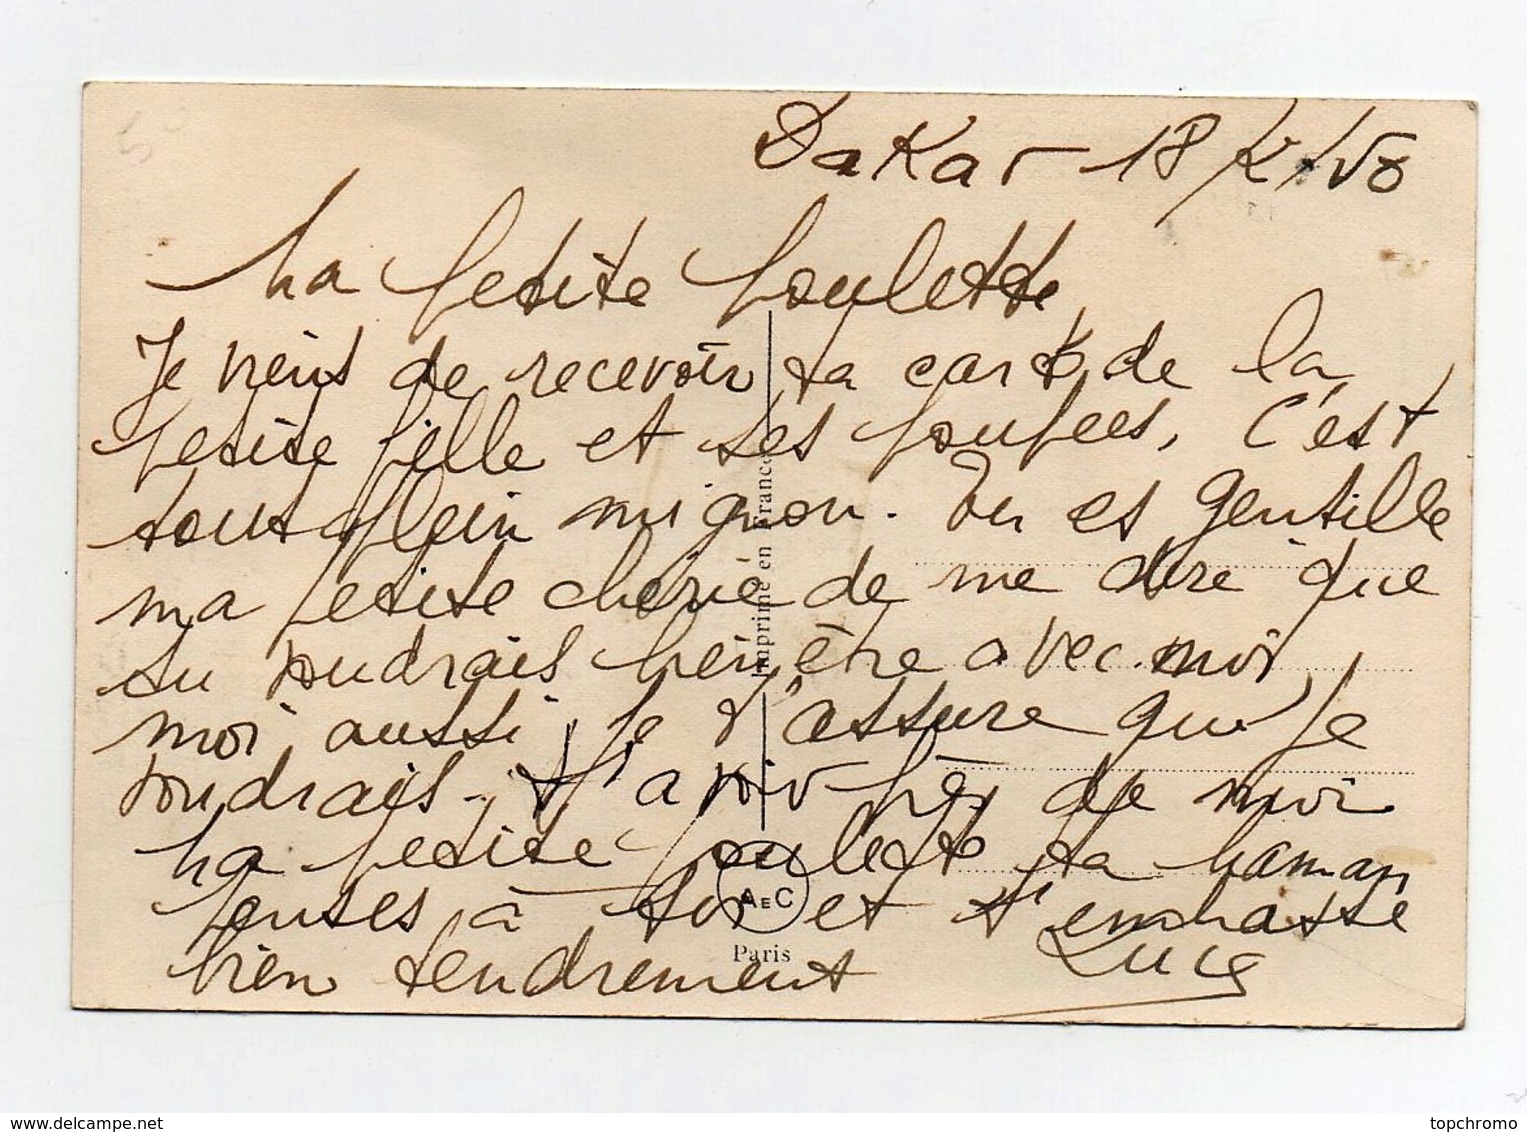 Dakar 18/2/50
Ma petite poulette
Je viens de recevoir ta carte de la
petite fille et ses poupées, c'est
tout plein mignon. Tu es gentille
ma petite chérie de me dire que
tu voudrais bien être avec moi,
moi aussi je t'assure que je
voudrais t'avoir près de moi
Ma petite poulette ta maman
penses à toi et t'embrasse
bien tendrement Luce
Imprimé en France
AEC
Paris
delcampe.net
topchromo